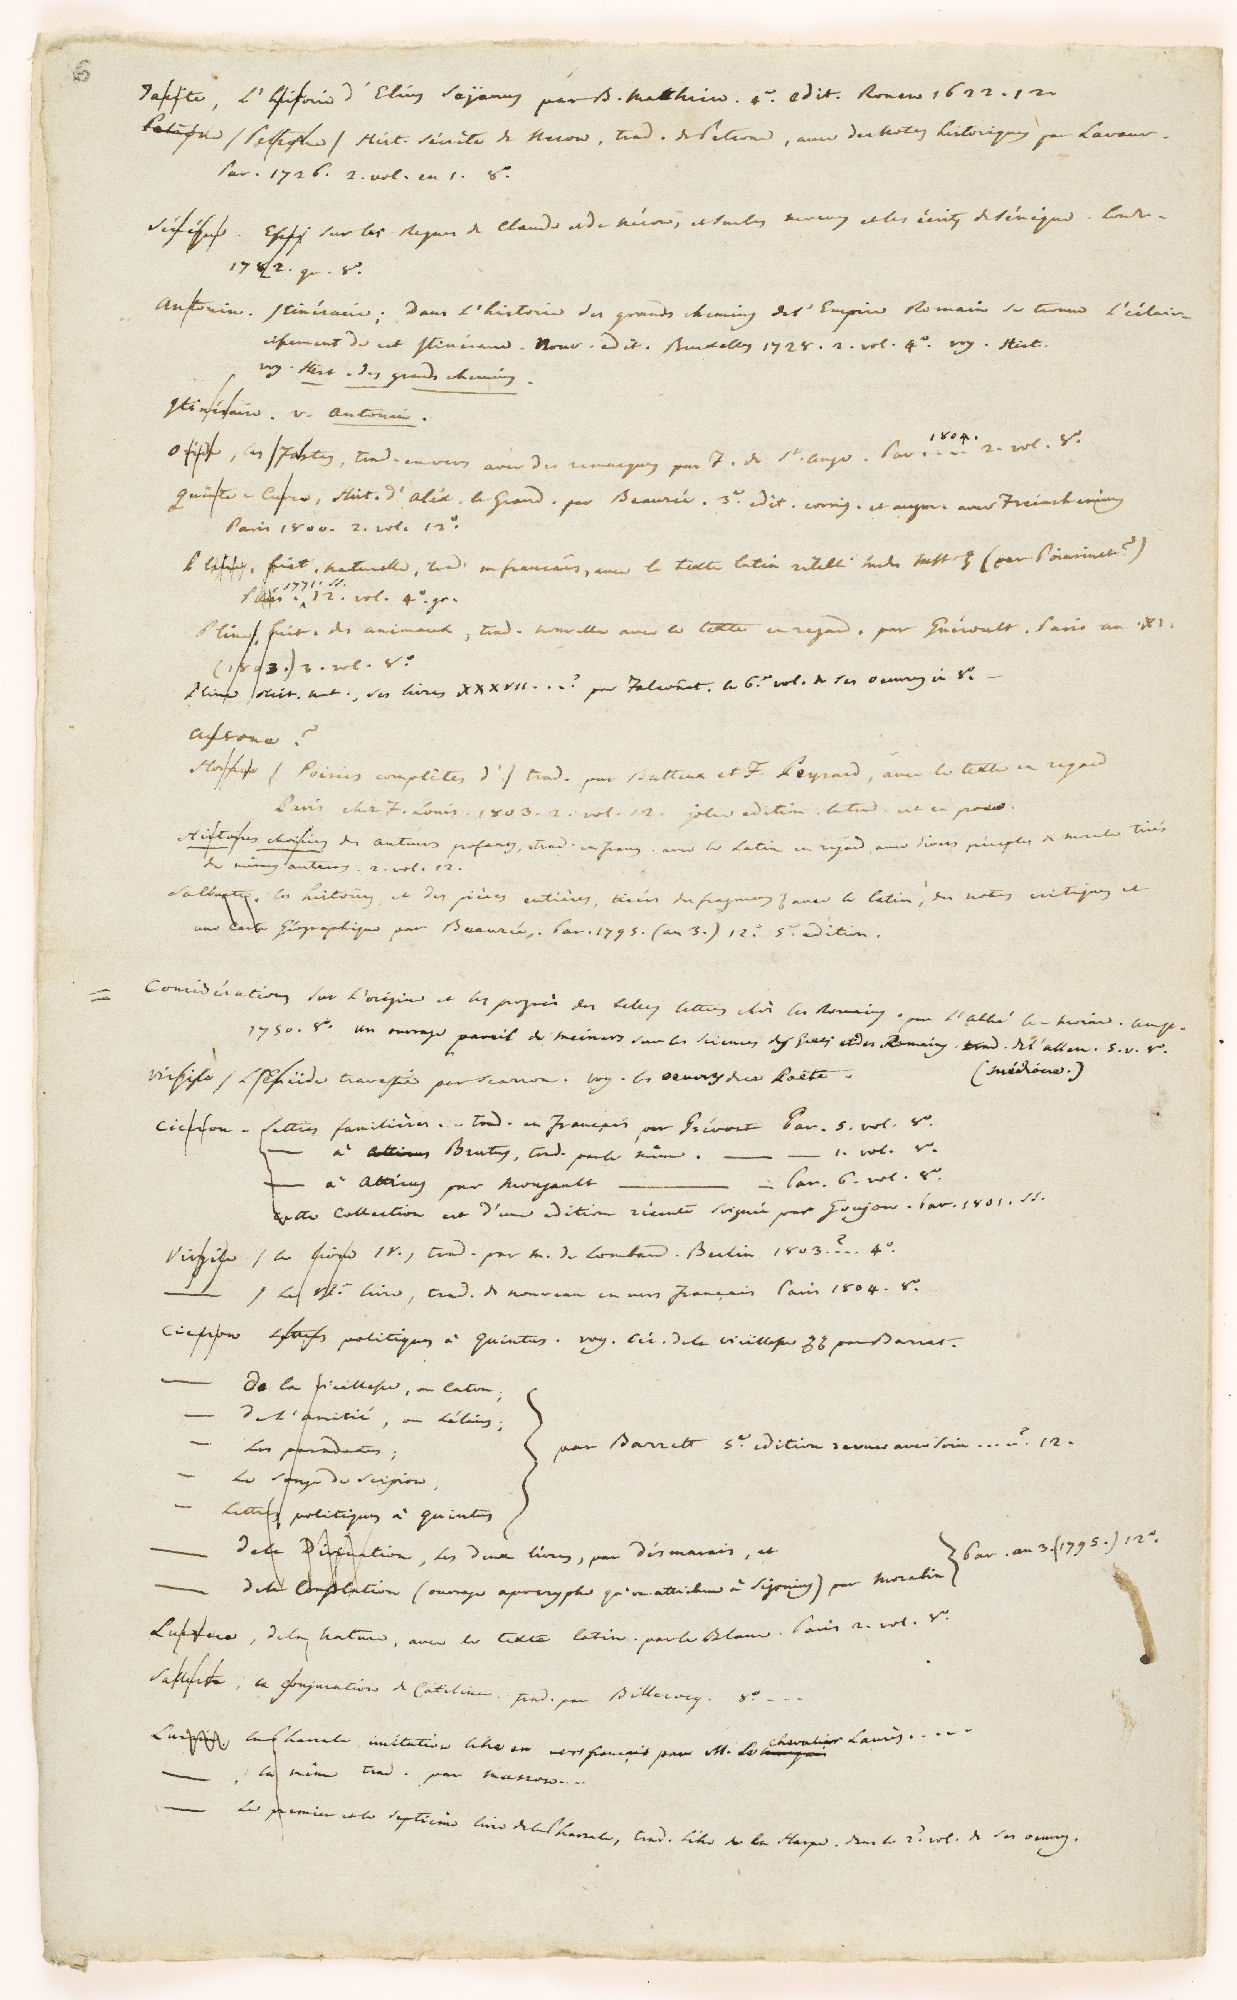 6
Tacite, L'histoire d'Elius Sejanus par B. Mathieu. 4e. edit. Rouen 1622. 12.
Petrone / Petrone / Hist. Sécrète de Neron, trad. de Petrone, avec des Notes historiques par Lavaur.
Par. 1726. 2. vol. en 1. 8°.
Sénéque. Essai sur les Regnes de Claude et de Néron, et sur les moeurs et les écrits de Sénèque. Londr.
1782. gr. 8°.
Antonin. Itinéraire; dans L'histoire des grands chemins de l'Empire Romain se trouve L'éclair-
cissement de cet Itinéraire. Nouv. edit. Bruxelles 1728. 2. vol. 4°. voy. Hist.
voy. Hist. des grands chemins.
Itinéraire. v. Antonin.
Ovide, les Fastes, trad. en vers avec des remarques par F. de St. Ange. Par. 1804. 2. vol. 8°
Quinte-Curce, Hist. d'Aléx. le Grand. par Beauzée. 3e. edit. corrig. et augm. avec Freinshemius
Paris 1800. 2. vol. 12°.
Pline, hist. naturelle, trad. en français, avec le texte latin rétabli (par Poinsinet?)
Paris 1771. ss. 12. vol. 4°. gr.
Pline, hist. des animaux, trad. nouvelle avec le texte en regard. par Guéroult. Paris an XI.
(1803.) 3. vol. 8°
Pline Hist. nat., ses livres XXXVII...? par Falconet. le 6e vol. de ses oeuvres in 8°. —
Ausone ?
Horace / Poésies complètes d'/ trad. par Batteux et F. Peyrard, avec le texte en regard
Paris chez F. Louis. 1803. 2. vol. 12. jolie edition. la trad. est en prose.
Histoires choisies des auteurs profanes, trad. en franç. avec le Latin en régard, avec divers préceptes de morale tirés
de mêmes auteurs. 2. vol. 12.
Salluste. les histoires, et des pièces entières, tirées des fragmens avec le latin, des notes critiques et
une carte Géographique par Beauzée. Par. 1795. (an 3.) 12°. 5e edition.
= Considérations sur L'origine et les progrès des belles lettres chés les Romains. par L'abbé le-Moine. Amst.
1750. 8°. un ouvrage pareil de Meiners sur les Sciences des Grecs et des Romains. trad. de l'allem. 5. v. 8°.
(médiocre.)
Virgile / L'Enéïde travestie par Scarron. voy. les oeuvres du Poëte.
Ciceron - Lettres familières. - trad. en Français par Prévost Par. 5. vol. 8°.
— à Atticus Brutus, trad. par le même. — — 1. vol. 8°.
— à Atticus par Mongault — — Par. 6. vol. 8°
cette Collection est d'une edition récente soignée par Goujon. Par. 1801. ss.
Virgile / le livre IV., trad. par M. de Lombard. Berlin 1803..?.. 4°.
— / Le VIe. livre, trad. de nouveau en vers français Paris 1804. 8°.
Ciceron Lettres politiques à Quintus. voy. Cic. de la vieillesse par Barrett.
— De la vieillesse, ou Caton;
— De L'amitié, ou Lélius;
— Les paradoxes;
— Le Songe de Scipion,
— Lettres politiques à Quintus
par Barrett 5e. edition revue avec soin ....?. 12.
— De la Divination, les deux livres, par Désmarais, et
— De la Consolation (ouvrage apocryphe qu'on attribue à Sigonius) par Morabin
Par. an 3. (1795.) 12°.
Lucrece, de la Nature, avec le texte latin. par le Blanc. Paris 2. vol. 8°.
Salluste, la Conjuration de Catiline. trad. par Billecocq. 8°. ...
Lucain, la Pharsale imitation libre en vers français par M. Le chevalier Laurès.....
—, la même trad. par Masson...
— Le premier et le septième livre de la Pharsale, trad. libre de la Harpe. dans le 2e. vol. de ses oeuvres.